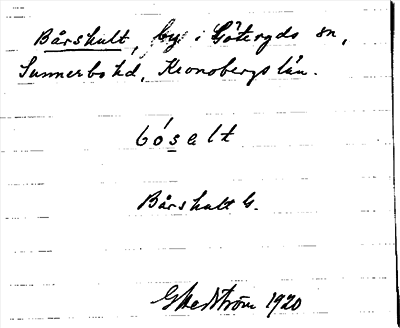 Bårshult, by i Göteryds sn,
Sunnerbo hd, Kronobergs län.
bósalt
Bårshult G.
G Hedström 1920